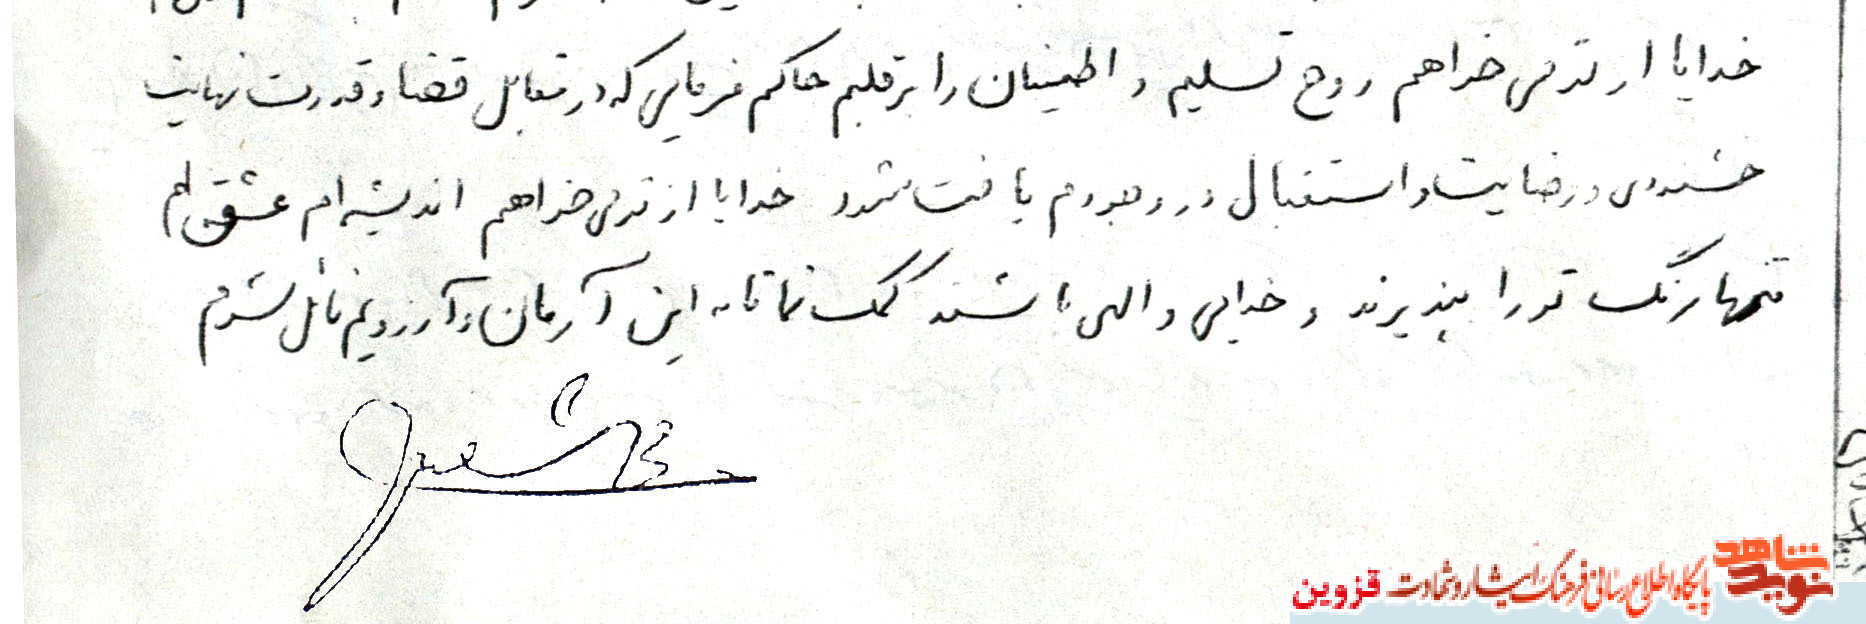 خدایا از تو می خواهم روح تسلیم و اطمینان را بر قلبم حاکم فرمایی که در مقابل قضا و قدرت نهایت
خشنودی و رضایت و استقبال در وجودم یافت شود خدایا از تو می خواهم اندیشه ام عشقم
تنها رنگ تو را بپذیرند و خدایی و الهی باشند کمک نما تا به این آرمان و آرزویم نائل شوم
نوید شاهد
پایگاه اطلاع رسانی فرهنگ ایثار و شهادت قزوین